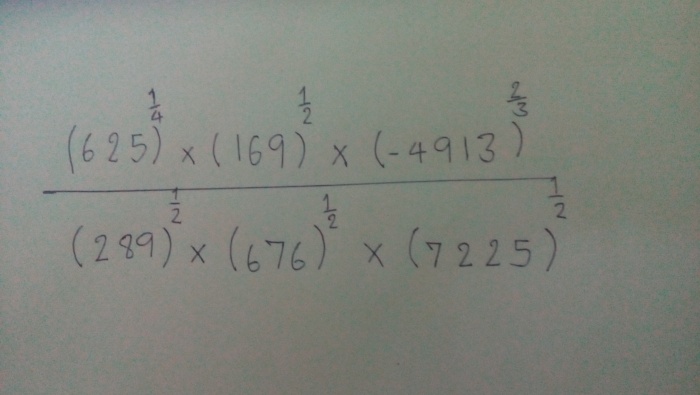 (625)^(1/4) × (169)^(1/2) × (-4913)^(2/3)
(289)^(1/2) × (676)^(1/2) × (7225)^(1/2)